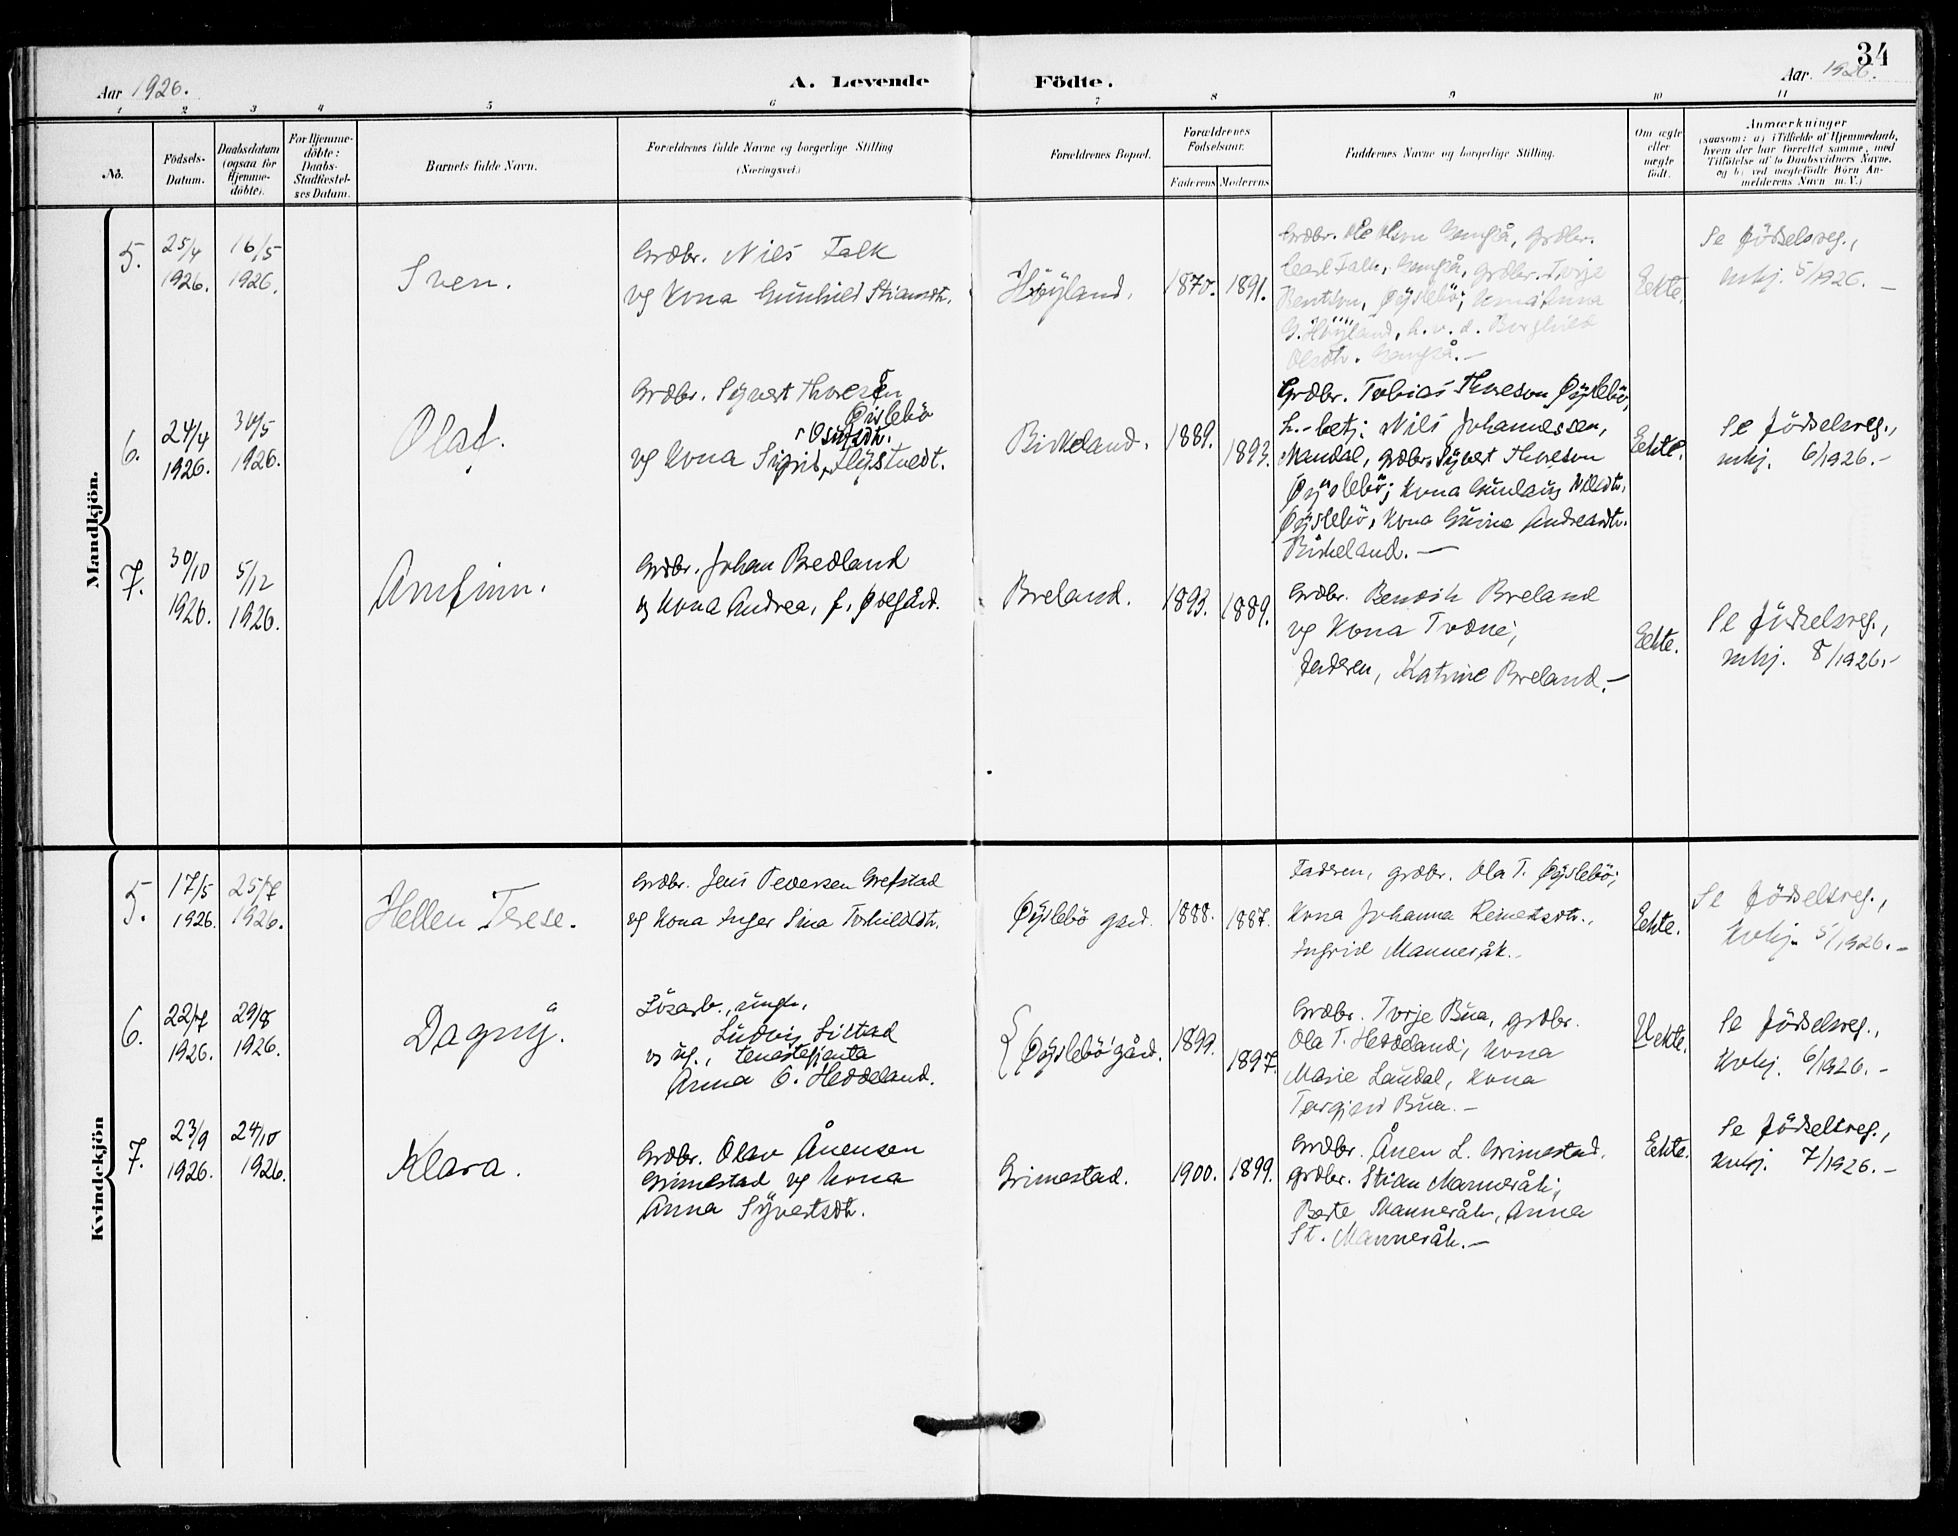 34
Aar 1926.
A. Levende Födte.
Aar. 1926.
1 2 3 4 5 6 7 8 9 10 11
No.
Födsels-
Datum.
Daabsdatum
(ogsaa for
Hjemme-
döbte).
For Hjemme-
döbte:
Daabs-
Stadfestel-
ses Datum.
Barnets fulde Navn.
Forældrenes fulde Navne og borgerlige Stilling
(Næringsvei.)
Forældrenes Bopæl.
Forældrenes
Födselsaar.
Faderens
Moderens
Faddernes Navne og borgerlige Stilling.
Om ægte
eller
uægte
födt.
Anmærkninger
(saasom: a) i Tilfælde af Hjemmedaab,
hvem der har forrettet samme, med
Tilföielse af to Daabsvidners Navne,
og b) ved uegtefödte Börn An-
melderens Navn m. V.)
Mandkjön.
5.
25/4
1926.
16/5
1926.
Sven.
Grdbr. Nils Falk
og kona Gunhild Stiansdtr.
Höyland.
1870.
1891.
Grdbr. Ole Olsen
Carl Falk, grdbr. Terje
Bentsen, Øyslebö; kona Anna
G. Höyland, h. v. d. Borghild
Olsdtr.
Eekte.
Se födselsreg.,
mkj. 5/1926. –
6.
24/4
1926.
30/5
1926.
Olaf.
Grdbr. Syvert Thoresen
Øislebö
og kona Sigrid Flystvedt.
Birkeland.
1889.
1893.
Grdbr. Tobias Thoreson Øyslebö,
h.-betj: Nils Johannessen,
Mandal, grdbr. Syvert Thoreson
Øyslebö; kona Gunlaug Nilsdtr.
Øyslebö, kona Gurine Andreasdtr.
Birkeland. –
Eekte.
Se födselsreg.,
mkj. 6/1926. –
7.
30/10
1926.
5/12
1926.
Arnfinn.
Grdbr. Johan Bredland
og kona Andrea, f. Øvegård.
Breland.
1893.
1889.
Grdbr. Bendik Breland
og kona Trdne,
Faderen, Katrine Breland. –
Eekte.
Se födselsreg.,
mkj. 8/1926. –
Kvindekjön
5.
17/5
1926.
25/7
1926.
Hellen Terese.
Grdbr. Jens Pedersen Grefstad
og kona Inger Sina Torkildsdtr.
Øyslebö gard.
1888.
1887.
Faderen, grdbr. Ola T. Øyslebö;
kona Johanna Reinertsdtr.,
Ingrid Manneråk.
Eekte.
Se födselsreg.,
kvkj. 5/1926. –
6.
22/7
1926.
29/8
1926.
Dagny.
Lösarb., ungk.
Ludvig Lilstad
og ug., tenestejenta
Anna O. Heddeland.
Øyslebö gård.
1899.
1897.
Grdbr. Terje Bua, grdbr.
Ola T. Heddeland; kona
Marie Laudal, kona
Torgjerd Bua. –
Uekte.
Se födselsreg.,
kvkj. 6/1926. –
7.
23/9
1926.
24/10
1926.
Klara.
Grdbr. Olav Ånensen
Grimestad og kona
Anna Syvertsdtr.
Grimestad.
1900.
1899.
Grdbr. Ånen L. Grimestad.
grdbr. Stian Manneråk;
Berte Manneråk, Anna
St. Manneråk. –
Eekte.
Se födselsreg.,
kvkj. 7/1926. –